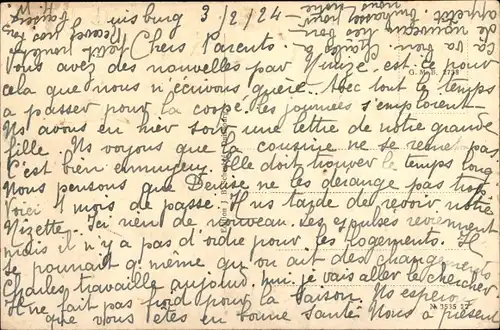 uisburg 3/2/24
Chers Parents
vous avez des nouvelles par est ce pour
cela que nous n'écrivons guère. Avec tout le temps
a passer pour la coopé. les journées s'emploient
Ns avons eu hier soir une lettre de notre grande
fille. Ns voyons que la cousine ne se remet pas
C'est bien ennuyeux. Elle doit trouver le temps long
Nous pensons que Denise ne les dérange pas trop
Voici 1 mois de passé. Il ns tarde de revoir notre
Nizette. Ici rien de nouveau. Les expulsés reviennent
mais il n'y a pas d'ordre pour les logements. Il
se pourrait q. même qu'on ait des changements
Charles travaille aujourd'hui. je vais aller le chercher
Il ne fait pas froid pour la saison. Ns espérons
que vous êtes en bonne santé. Nous à présent
ça va bien.
de nouveau
G. M. 2738
№ 3535 17